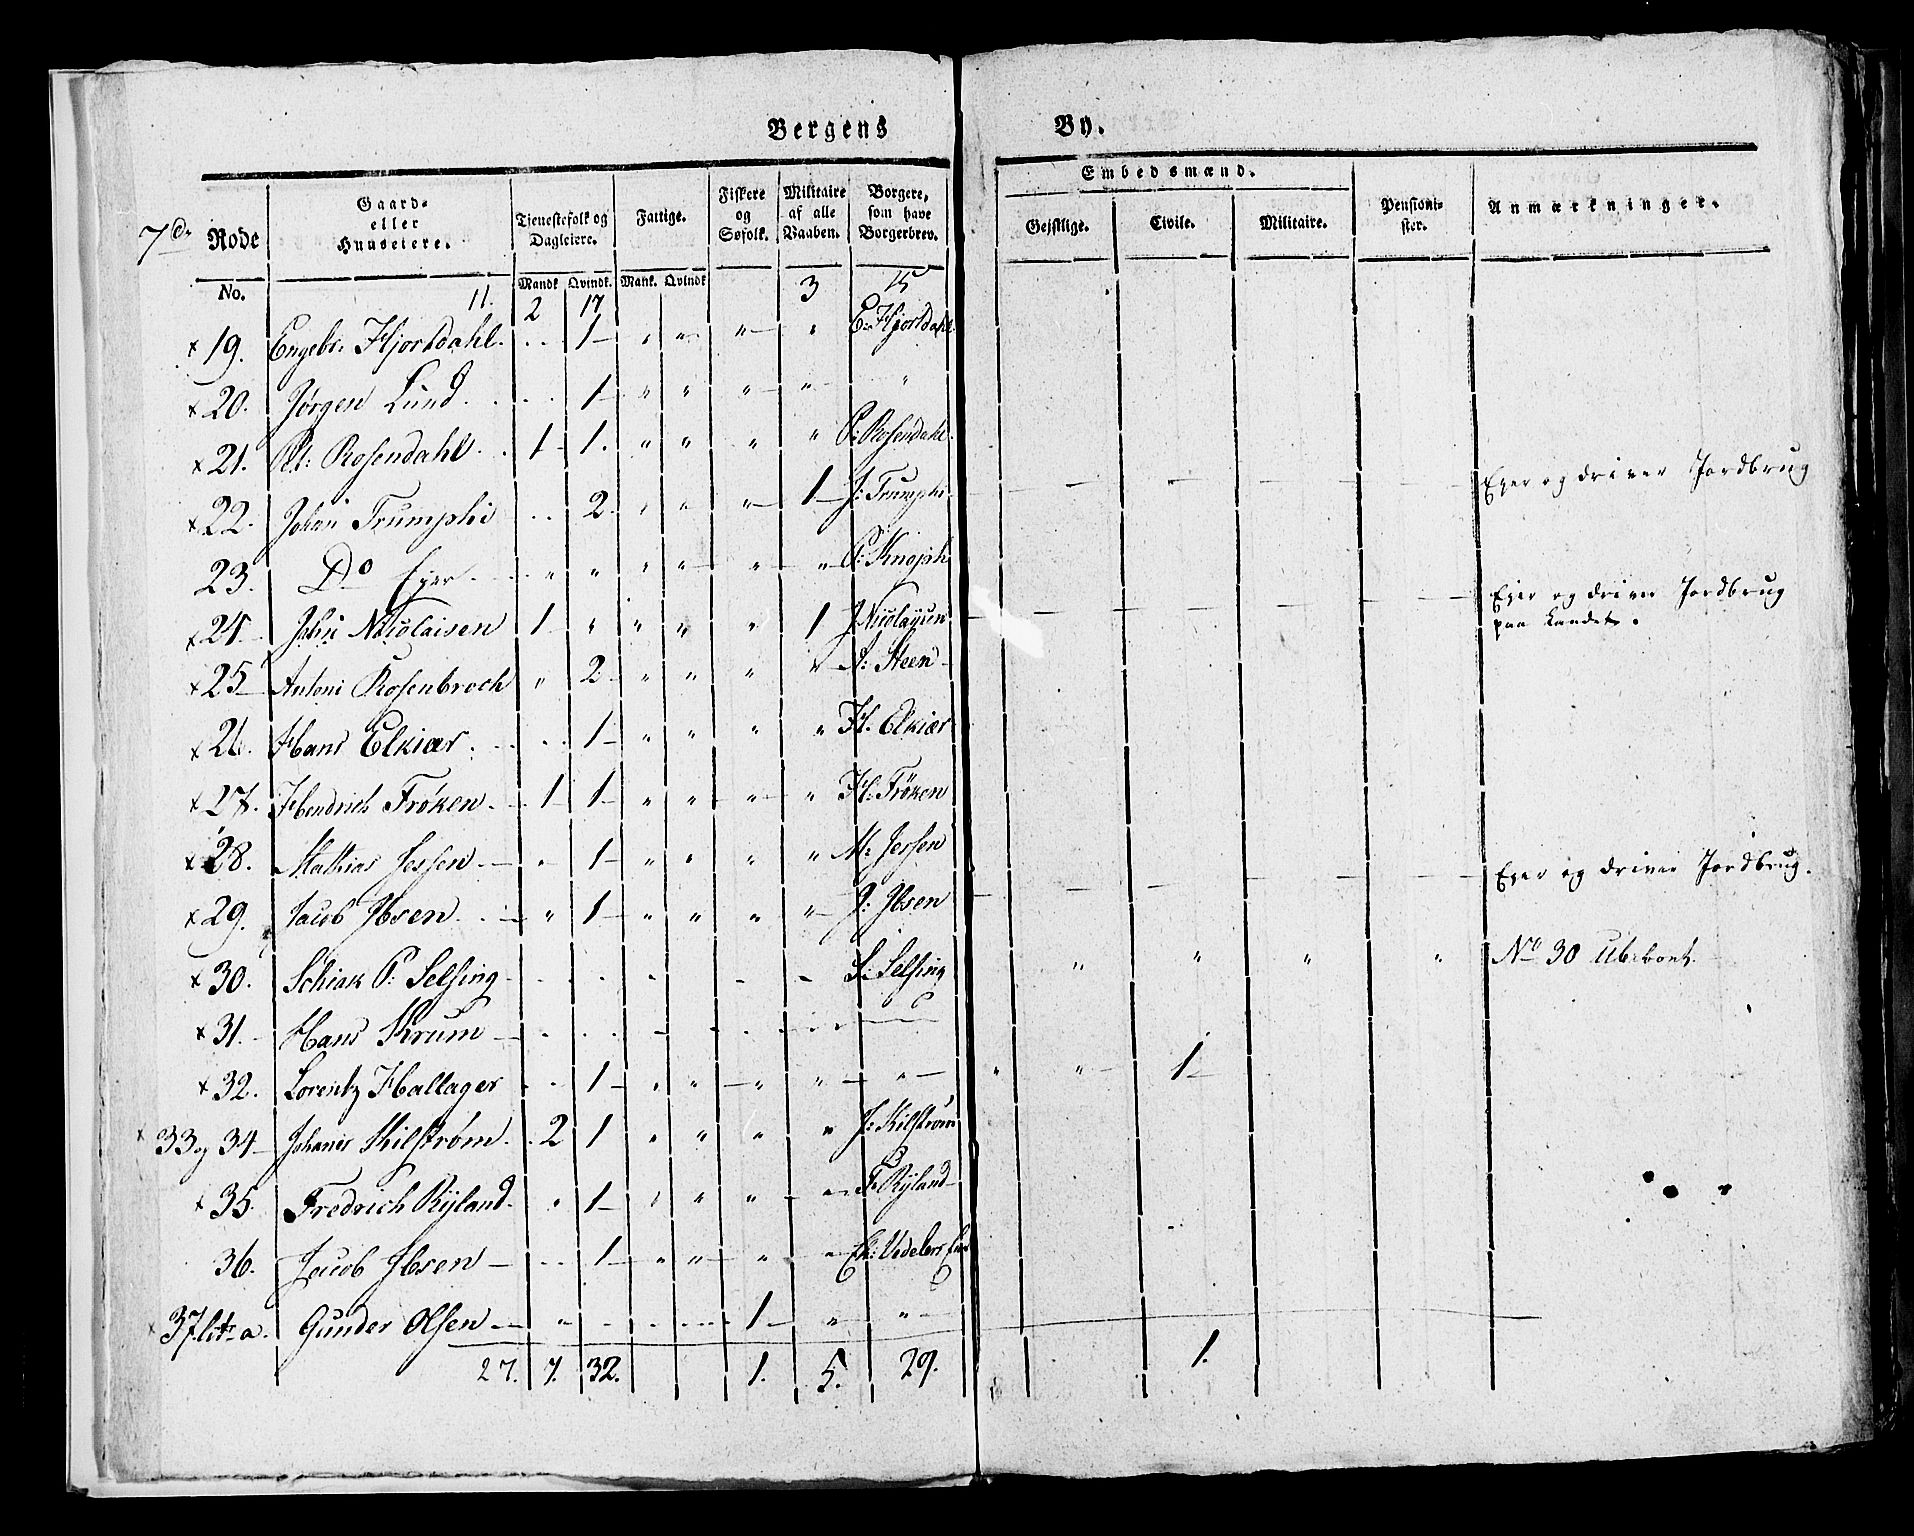 Bergens By.
7de Rode
Gaard- eller Huuseiere.
Tjenestefolk og Dagleiere.
Fattige.
Fiskere og Søfolk.
Militaire af alle Vaaben.
Borgere, som have Borgerbrev.
Embedsmænd.
Gejstlige. Civile. Militaire.
Pensionister.
Anmærkninger.
No. Mandk Qvindk. Mank. Qvindk
11. 2 17 3 15
x 19. Engebr: Hjortdahl. . . 1 — „ „ „ „ E: Hjortdahl.
x 20. Jørgen Lund . . . 1 — „ „ „ „ „
x 21. Rosendahl . 1 — 1. „ „ „ „ P: Rosendahl.
x 22. Johan Trumphi . . 2. „ „ „ 1 — J: Trumphi — Eyer og driver Jordbrug
23. Do Eyer . „ „ „ „ „ „ P: Knoph
x 24 — John Nicolaisen 1 — „ „ „ „ 1 J Nicolaysen — Eyer og driver Jordbrug
paa Landet.
x 25 — Antoni Rosenbroch „ 2 — „ „ „ „ A: Steen —
x 26. Hans Elkiær . . . 1 — „ „ „ „ H. Elkiær
x 27. Hendrich Frøken . 1 1 — „ „ „ „ H: Frøken
x 28. Mathias Jessen . — „ 1 — „ „ „ „ M: Jessen
x 29. Jacob Ibsen . — „ 1 — „ „ „ „ J: Ibsen — Eyer og driver Jordbrug.
x 30. Schiak P: Selsing . . . . — — S: Selsing „ „ „ „ No 30 Ubebont.
x 31. — Hans Krum — . . . — . . —
x 32. Lorentz Hallager . . 1 — „ „ — „ „ — „ — „ „ — 1 —
x 33 og 34 — Johanes Kilstrøm . 2 1 „ „ „ „ J: Kilstrøm
x 35. Fredrich Ryland . „ 1 — „ „ „ — „ F: Ryland —
36. Jacob Ibsen — . . 1 — „ „ — „ „ Vedelers
x 37 litr a. Gunder Olsen — „ . . . 1 — „ „ —
27. 7. 32. 1. 5. 29. 1.